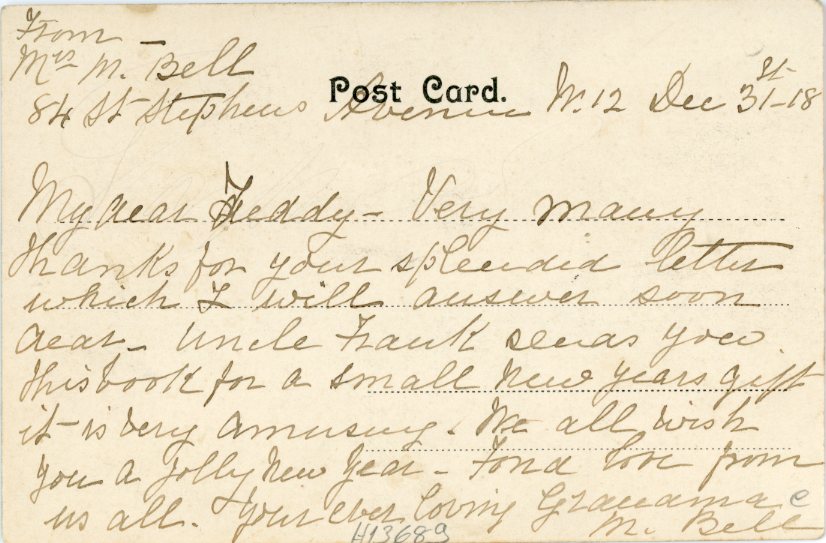 From
Mrs M. Bell
Post Card.
84 St Stephens Avenue W.12 Dec 31st-18
My dear Teddy - Very many
thanks for your splendid letter
which I will answer soon
dear - Uncle Frank sends you
this book for a small New Years gift
it is very amusing. We all wish
you a jolly New Year - Fond love from
us all. Your ever loving Grandma
M. Bell
H13689